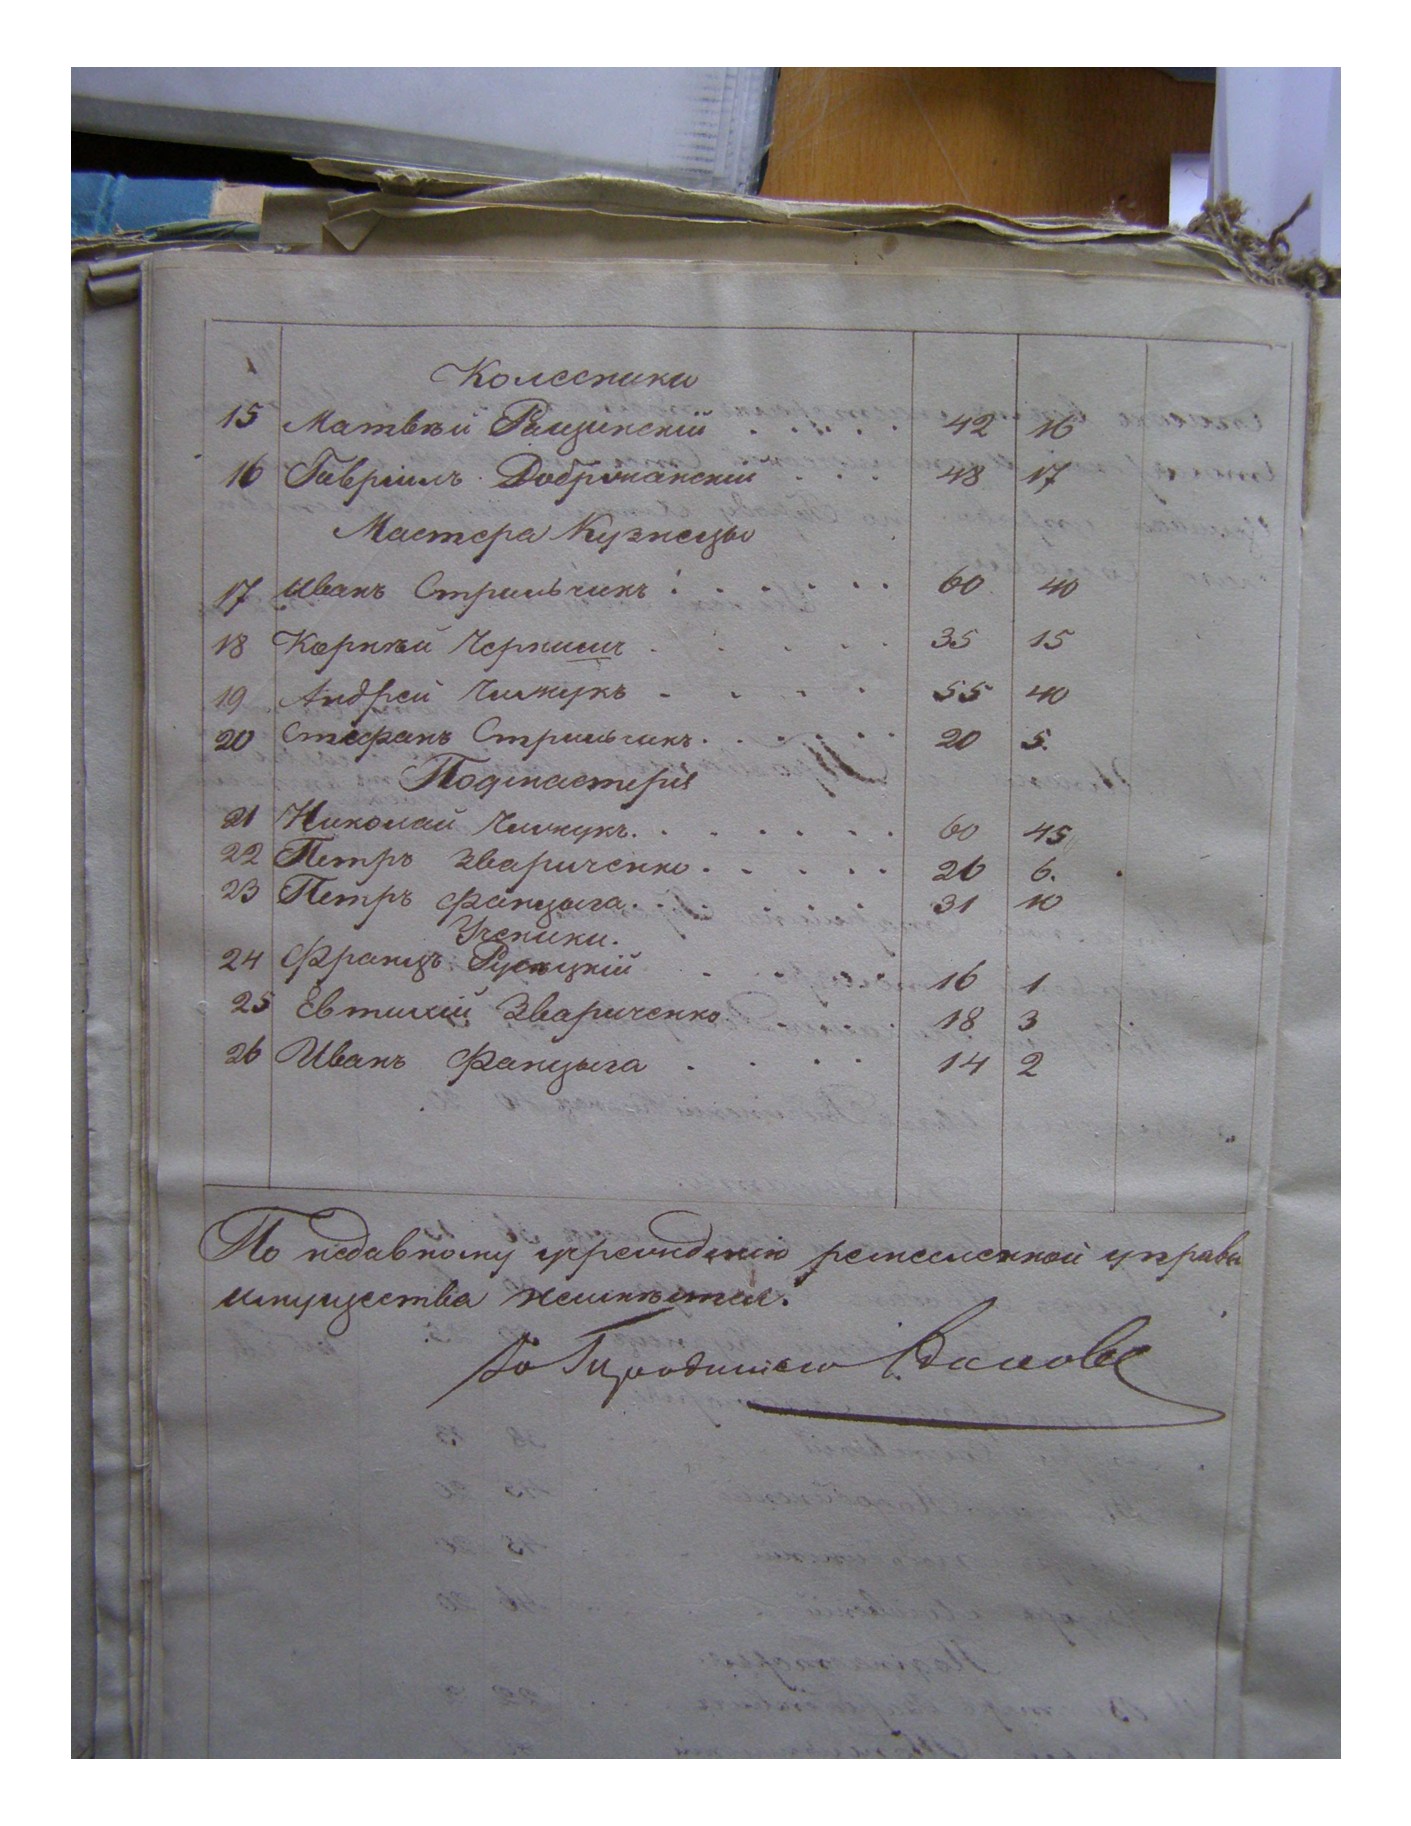 Колесники
15 Матвѣй Ращинскій 42 16
16 Гавріилъ Добржанскій 48 17
Мастера Кузнецы
17 Иванъ Стрильчикъ 60 40
18 Корнѣй Черниш 35 15
19 Андрей Чимчукъ 55 40
20 Стефанъ Стрильчикъ 20 5.
Подмастерья
21 Николай Чимчукъ 60 45
22 Петръ Звариченко 26 6.
23 Петръ Фанцыга 31 10
Ученики.
24 Францъ 16 1
25 Евтихій Звариченко 18 3
26 Иванъ Фанцыга 14 2
По недавному учрежденію ремесленной управы
имущества неимѣется.